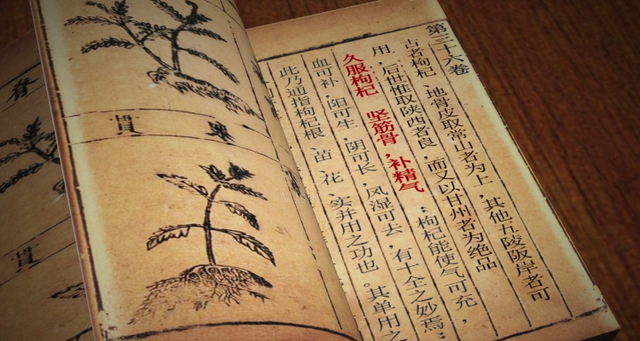 第三十六卷
古者枸杞、地骨皮取常山者为上，其他五陵阪岸者可
用，后世惟取陕西者良，而又以甘州者为绝品
久服枸杞 坚筋骨，补精气；枸杞能使气可充，
血可补，阳可生，阴可长，风湿可去，有十全之妙焉；
此乃通指枸杞根、苗、花、实并用之功也。其单用之